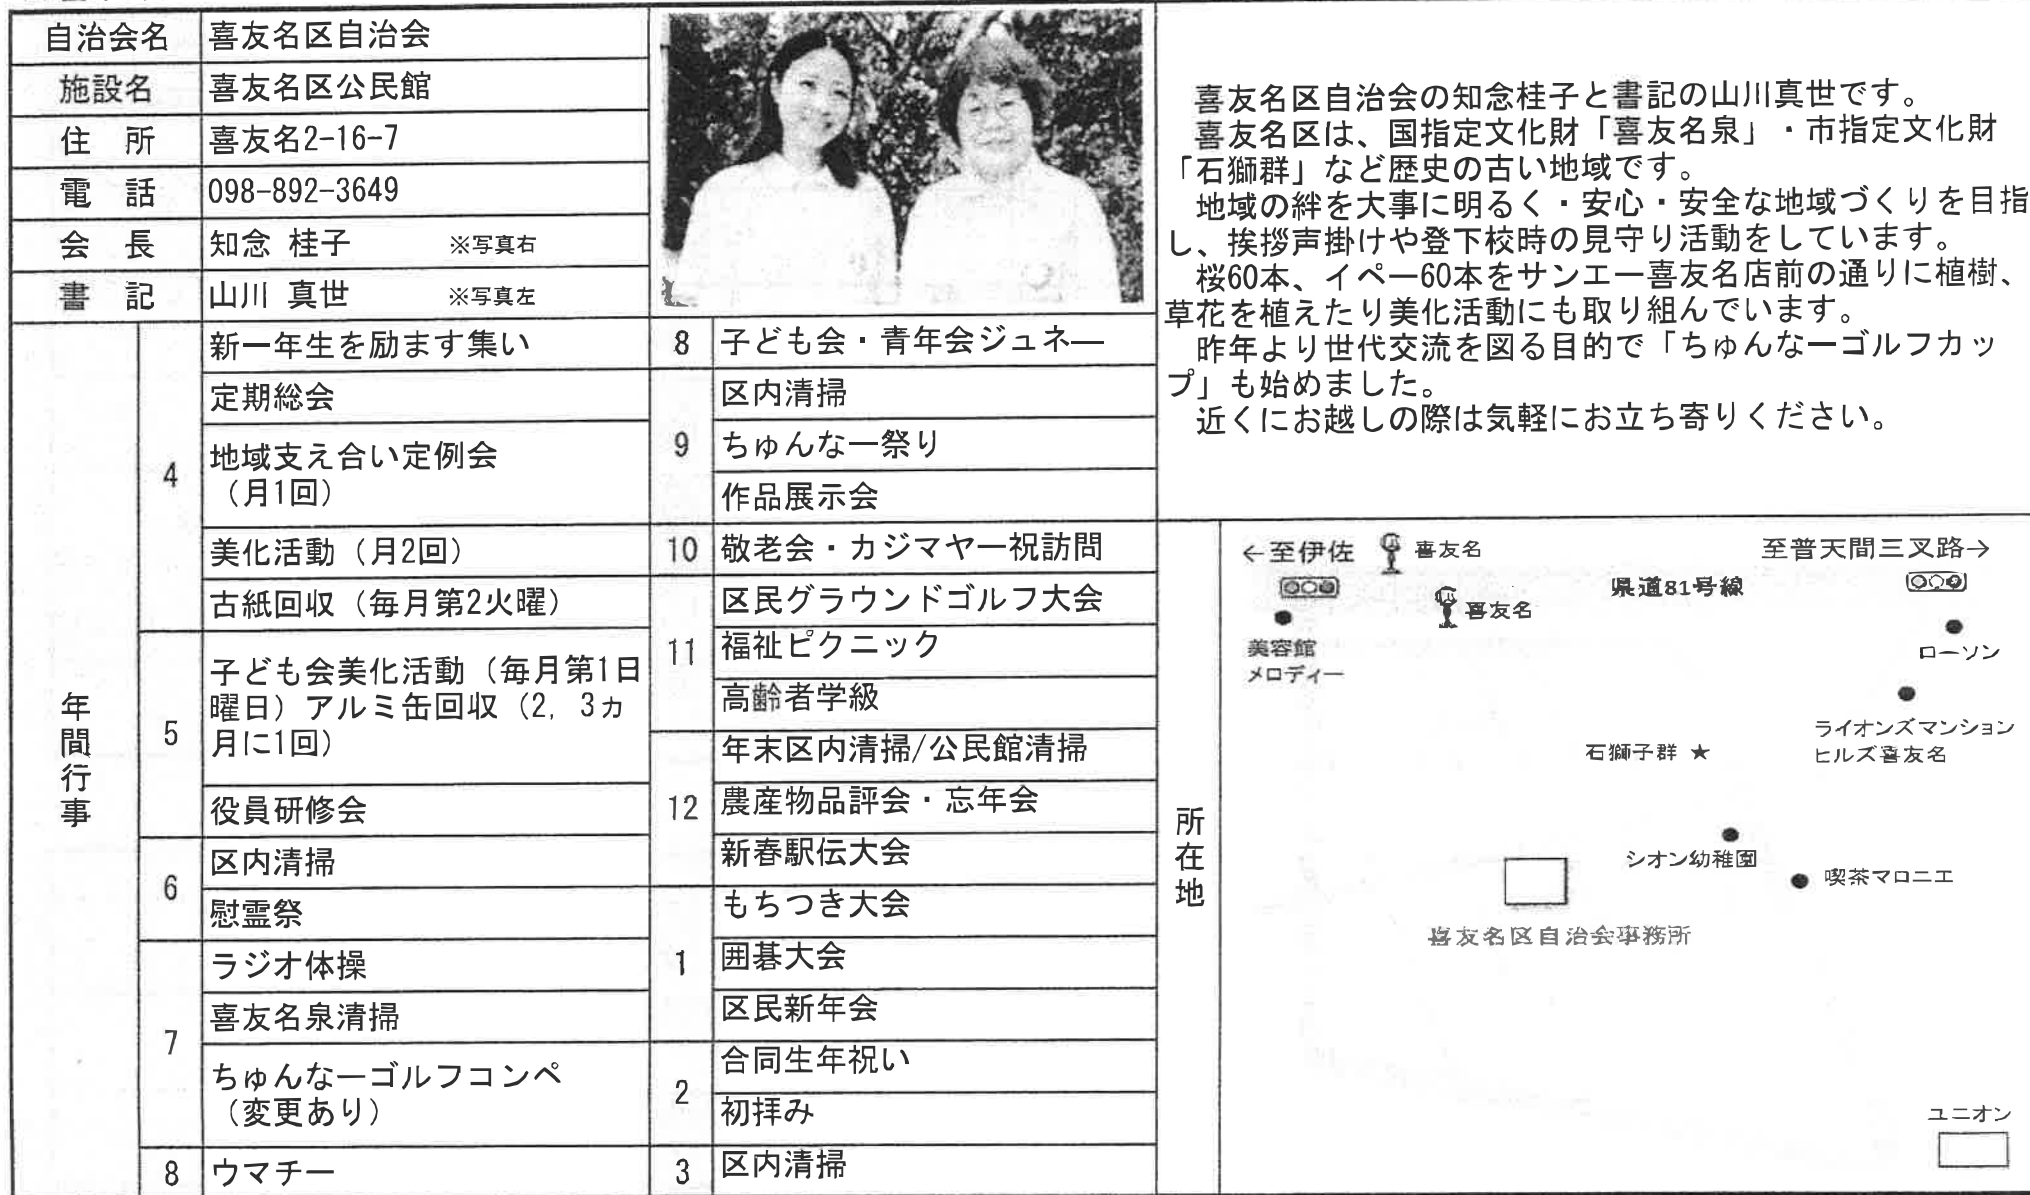 自治会名 喜友名区自治会
施設名 喜友名区公民館
住 所 喜友名2-16-7
電 話 098-892-3649
会 長 知念 桂子 ※写真右
書 記 山川 真世 ※写真左
年間行事
4
新一年生を励ます集い
定期総会
地域支え合い定例会
（月1回）
美化活動（月2回）
古紙回収（毎月第2火曜）
5
子ども会美化活動（毎月第1日
曜日）アルミ缶回収（2, 3ヵ
月に1回）
役員研修会
6
区内清掃
慰霊祭
7
ラジオ体操
喜友名泉清掃
ちゅんなーゴルフコンペ
（変更あり）
8 ウマチー
8 子ども会・青年会ジュネー
9
区内清掃
ちゅんなー祭り
作品展示会
10 敬老会・カジマヤー祝訪問
11
区民グラウンドゴルフ大会
福祉ピクニック
高齢者学級
12
年末区内清掃/公民館清掃
農産物品評会・忘年会
新春駅伝大会
1
もちつき大会
囲碁大会
区民新年会
2
合同生年祝い
初拝み
3 区内清掃
喜友名区自治会の知念桂子と書記の山川真世です。
喜友名区は、国指定文化財「喜友名泉」・市指定文化財
「石獅群」など歴史の古い地域です。
地域の絆を大事に明るく・安心・安全な地域づくりを目指
し、挨拶声掛けや登下校時の見守り活動をしています。
桜60本、イペー60本をサンエー喜友名店前の通りに植樹、
草花を植えたり美化活動にも取り組んでいます。
昨年より世代交流を図る目的で「ちゅんなーゴルフカッ
プ」も始めました。
近くにお越しの際は気軽にお立ち寄りください。
所在地
←至伊佐 喜友名 至普天間三叉路→
県道81号線
喜友名
美容館
メロディー
ローソン
ライオンズマンション
ヒルズ喜友名
石獅子群 ★
シオン幼稚園
喫茶マロニエ
喜友名区自治会事務所
ユニオン